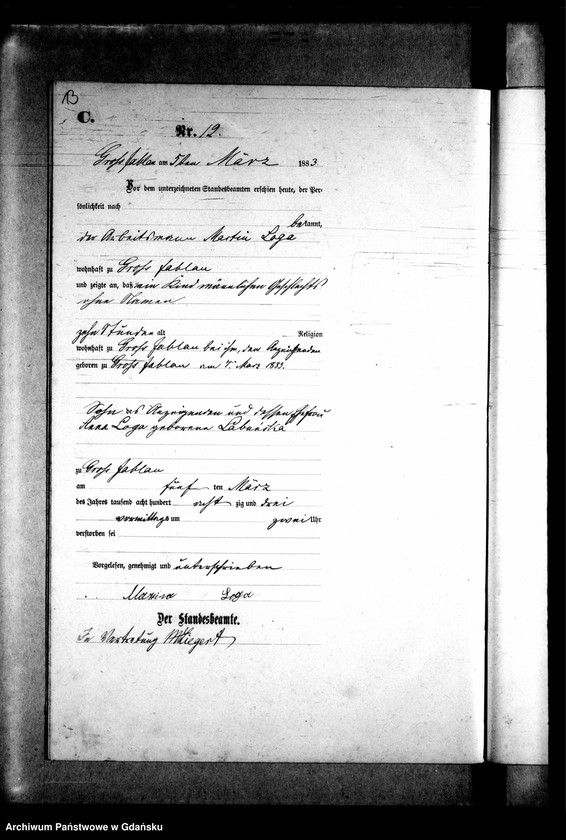 13
C.
Nr. 12.
Gross Jablau am 5ten März 1883.
Vor dem unterzeichneten Standesbeamten erschien heute, der Per-
sönlichkeit nach
bekannt,
der Arbeitsmann Martin Loga
wohnhaft zu Gross Jablau
und zeigte an, daß ein Kind männlichen Geschlechts
ohne Namen
zehn Stunden alt Religion
wohnhaft zu Gross Jablau bei ihm, dem Anzeigenden
geboren zu Gross Jablau am März 1883.
Sohn des Anzeigenden und dessen Ehefrau
Anna Loga geborene
zu Gross Jablau
am fünf ten März
des Jahres tausend acht hundert acht zig und drei
vormittags um zwei Uhr
verstorben sei
Vorgelesen, genehmigt und unterschrieben
Loga
Der Standesbeamte.
In Vertretung
Archiwum Państwowe w Gdańsku